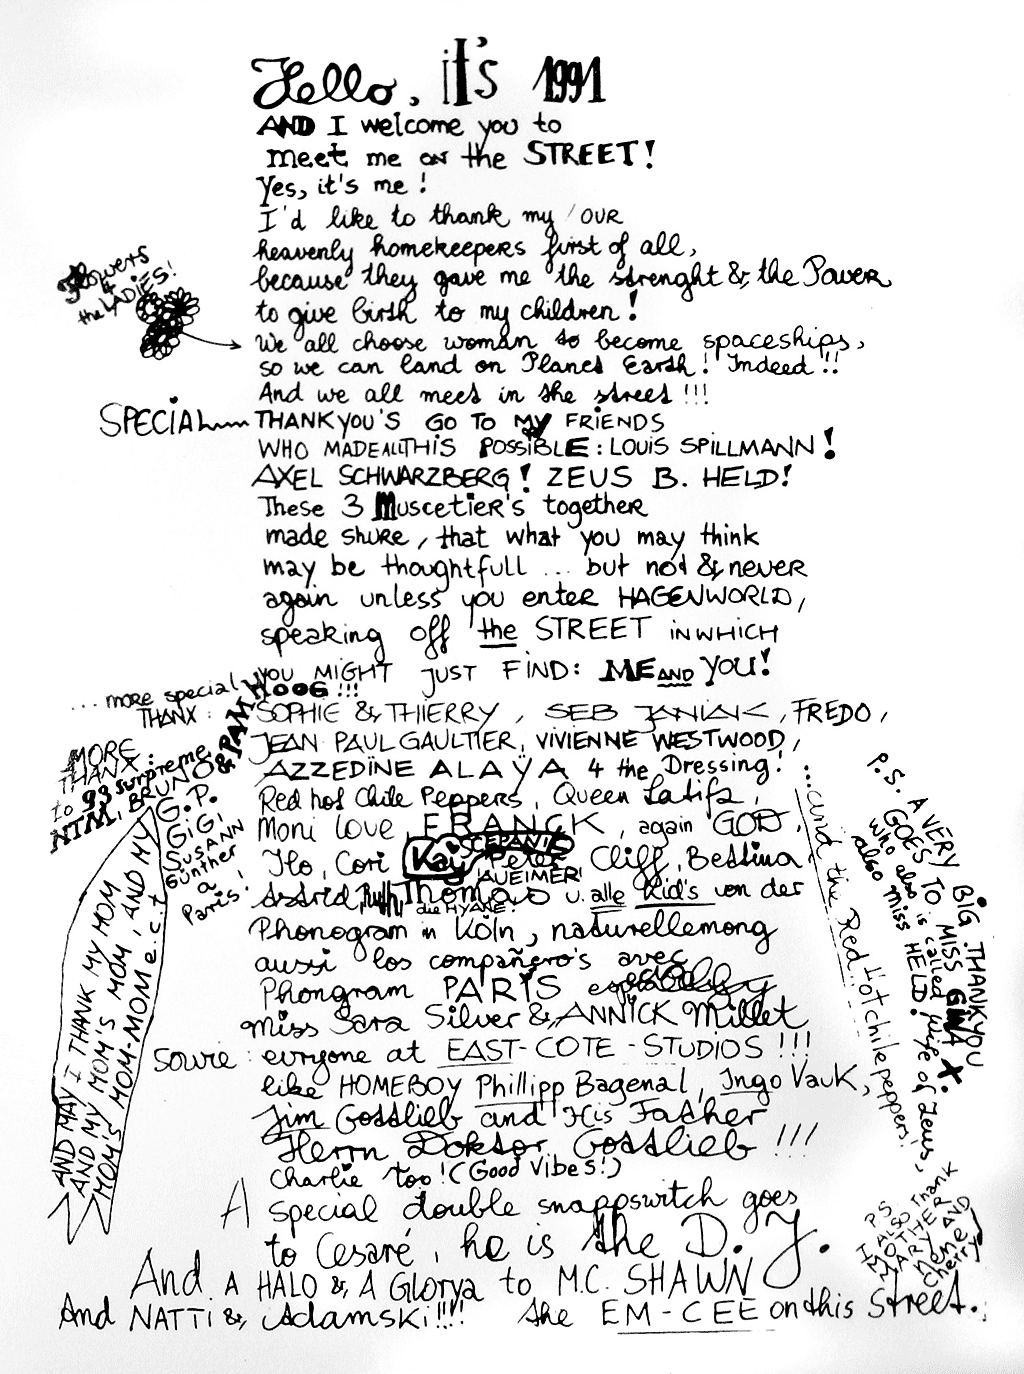 Hello, it's 1991
AND I welcome you to
meet me on the STREET!
Yes, it's me!
I'd like to thank my / OUR
heavenly homekeepers first of all,
because they gave me the strenght & the Power
to give birth to my children!
Flowers
4
the LADIES!
We all choose woman to become spaceships,
so we can land on Planet Earth! Indeed!!
And we all meet in the street!!!
SPECIAL THANKYOU'S GO TO MY FRIENDS
WHO MADE ALL THIS POSSIBLE: LOUIS SPILLMANN!
AXEL SCHWARZBERG! ZEUS B. HELD!
These 3 Muscetier's together
made shure, that what you may think
may be thoughtfull ... but not & never
again unless you enter HAGENWORLD,
speaking off the STREET IN WHICH
YOU MIGHT JUST FIND: ME AND YOU!
... more special
THANX:
HOOG!!!
SOPHIE & THIERRY, SEB JANIAK, FREDO,
JEAN PAUL GAULTIER, VIVIENNE WESTWOOD,
AZZEDINE ALAŸA 4 the Dressing!
Red hot Chile Peppers, Queen Latifa,
Moni love, FRANCK, again GOD,
Ilo, Cori Kay SCEPANIC Peter Cliff, Bettina
AUEIMER!
Astrid, Thomas u. alle Kid's von der
die HYÄNE!
Phonogram in Köln, naturellemong
aussi los compañero's avec
Phongram PARIS
Miss Sara Silver & ANNICK Millet
sowie: evryone at EAST-COTE-STUDIOS!!!
like HOMEBOY Phillipp Bagenal, Ingo Vauk,
Jim Gottlieb and His Father
Herrn Doktor Gottlieb!!!
Charlie too! (Good Vibes!)
A special double snappswitch goes
to Cesaré, he is the D.J.
And A HALO & A Glorya to M.C. SHAWN
And NATTI & Adamski!!!! the EM-CEE on this street.
MORE
THANX:
to 93 Surpreme
NTM, BRUNO & PAM
G.P.
GiGi
SUSANN
Günther
a
Paris!
AND MAY I THANK MY MOM
AND MY MOM'S MOM, AND MY
MOM'S MOM-MOM e.c.t
...and the Red Hot chilepeppers!
P.S. A VERY BIG THANKYOU
GOES TO MISS GINA X.
who also is called Wife of Zeus,
also Miss HELD!
P.S.
I ALSO Thank
MOTHER
MARY AND
Nene
Cherry